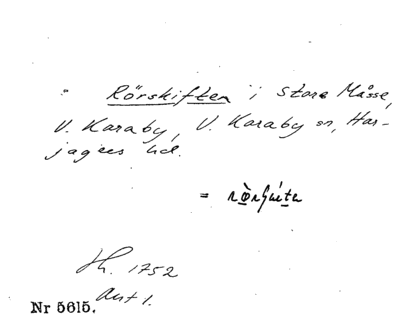 Rörskiften i Store Måsse,
V. Karaby, V. Karaby sn, Har-
jagers hd.
=
Hh. 1752
Akt 1.
Nr 5615.